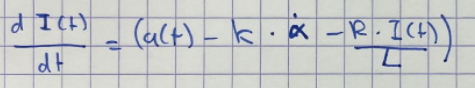 d I(t) / dt = (u(t) - k · α̇ - R · I(t) / L)